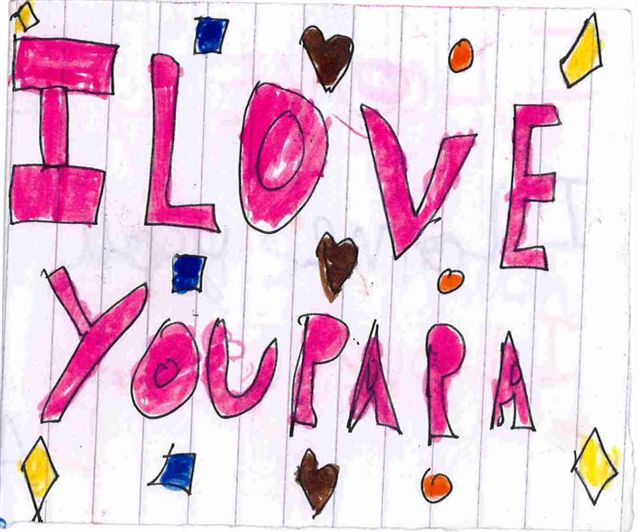 I LOVE
YOU PAPA